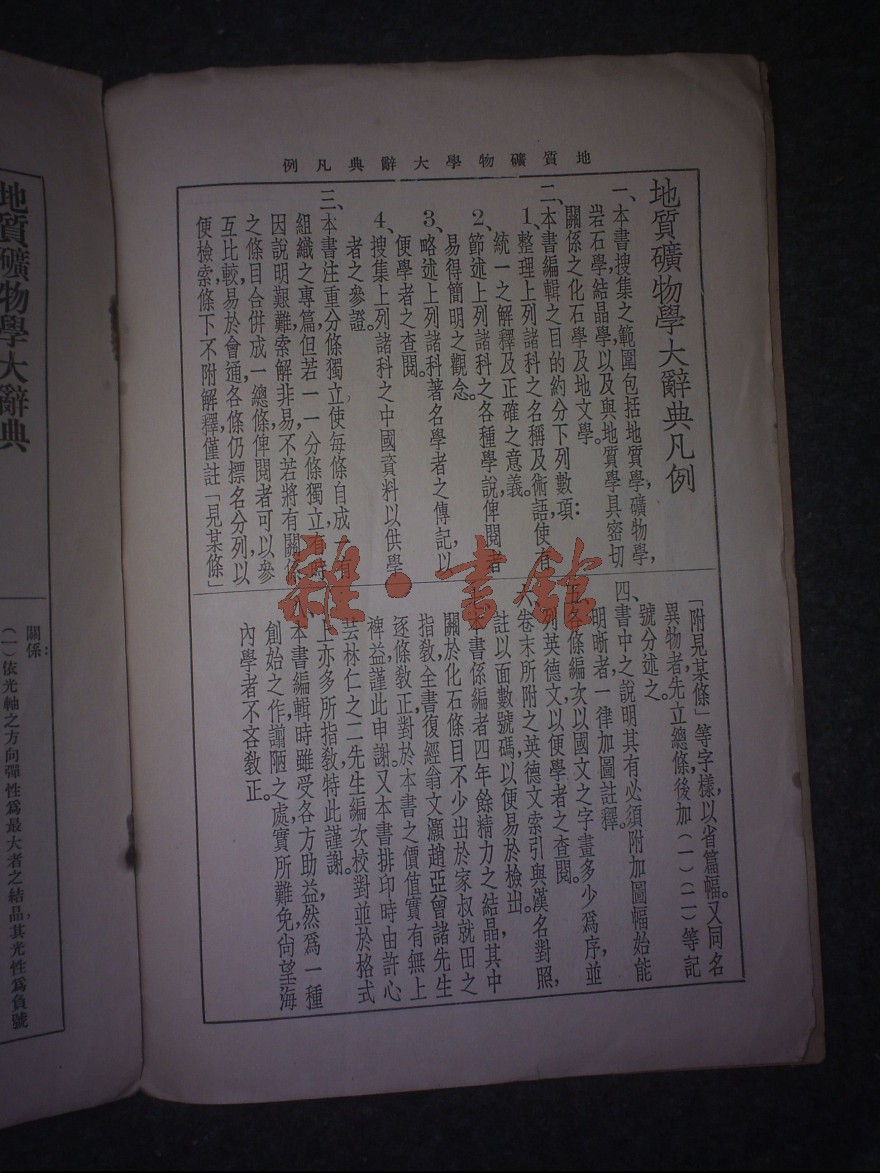 地質礦物學大辭典凡例
地質礦物學大辭典凡例
一、本書搜集之範圍包括地質學,礦物學,
岩石學結晶學以及與地質學具密切
關係之化石學及地文學。
二、本書編輯之目的約分下列數項:
1、整理上列諸科之名稱及術語使有
統一之解釋及正確之意義。
2、節述上列諸科之各種學說俾閱者
易得簡明之觀念。
3、略述上列諸科著名學者之傳記,以
便學者之查閱。
4、搜集上列諸科之中國資料以供學
者之參證。
三、本書注重分條獨立使每條自成一有
組織之專篇但若一一分條獨立有時
因說明艱難索解非易,不若將有關係
之條目合併成一總條俾閱者可以參
互比較,易於會通,各條仍標名分列,以
便檢索,條下不附解釋僅註「見某條」
「附見某條」等字樣,以省篇幅。又同名
異物者先立總條後加(一)(二)等記
號分述之。
四、書中之說明其有必須附加圖幅始能
明晰者,一律加圖註釋。
五、各條編次以國文之字畫多少爲序,並
列英德文以便學者之查閱。
六、卷末所附之英德文索引與漢名對照,
註以面數號碼,以便易於檢出。
本書係編者四年餘精力之結晶,其中
關於化石條目不少出於家叔就田之
指教,全書復經翁文灝趙亞曾諸先生
逐條教正,對於本書之價值實有無上
裨益謹此申謝。又本書排印時由許心
芸林仁之二先生編次校對並於格式
上亦多所指教特此謹謝。
本書編輯時雖受各方助益,然爲一種
創始之作,謭陋之處實所難免,尚望海
內學者不吝教正。
地質礦物學大辭典
關係:
(一)依光軸之方向彈性爲最大者之結晶,其光性爲負號
雜·書館